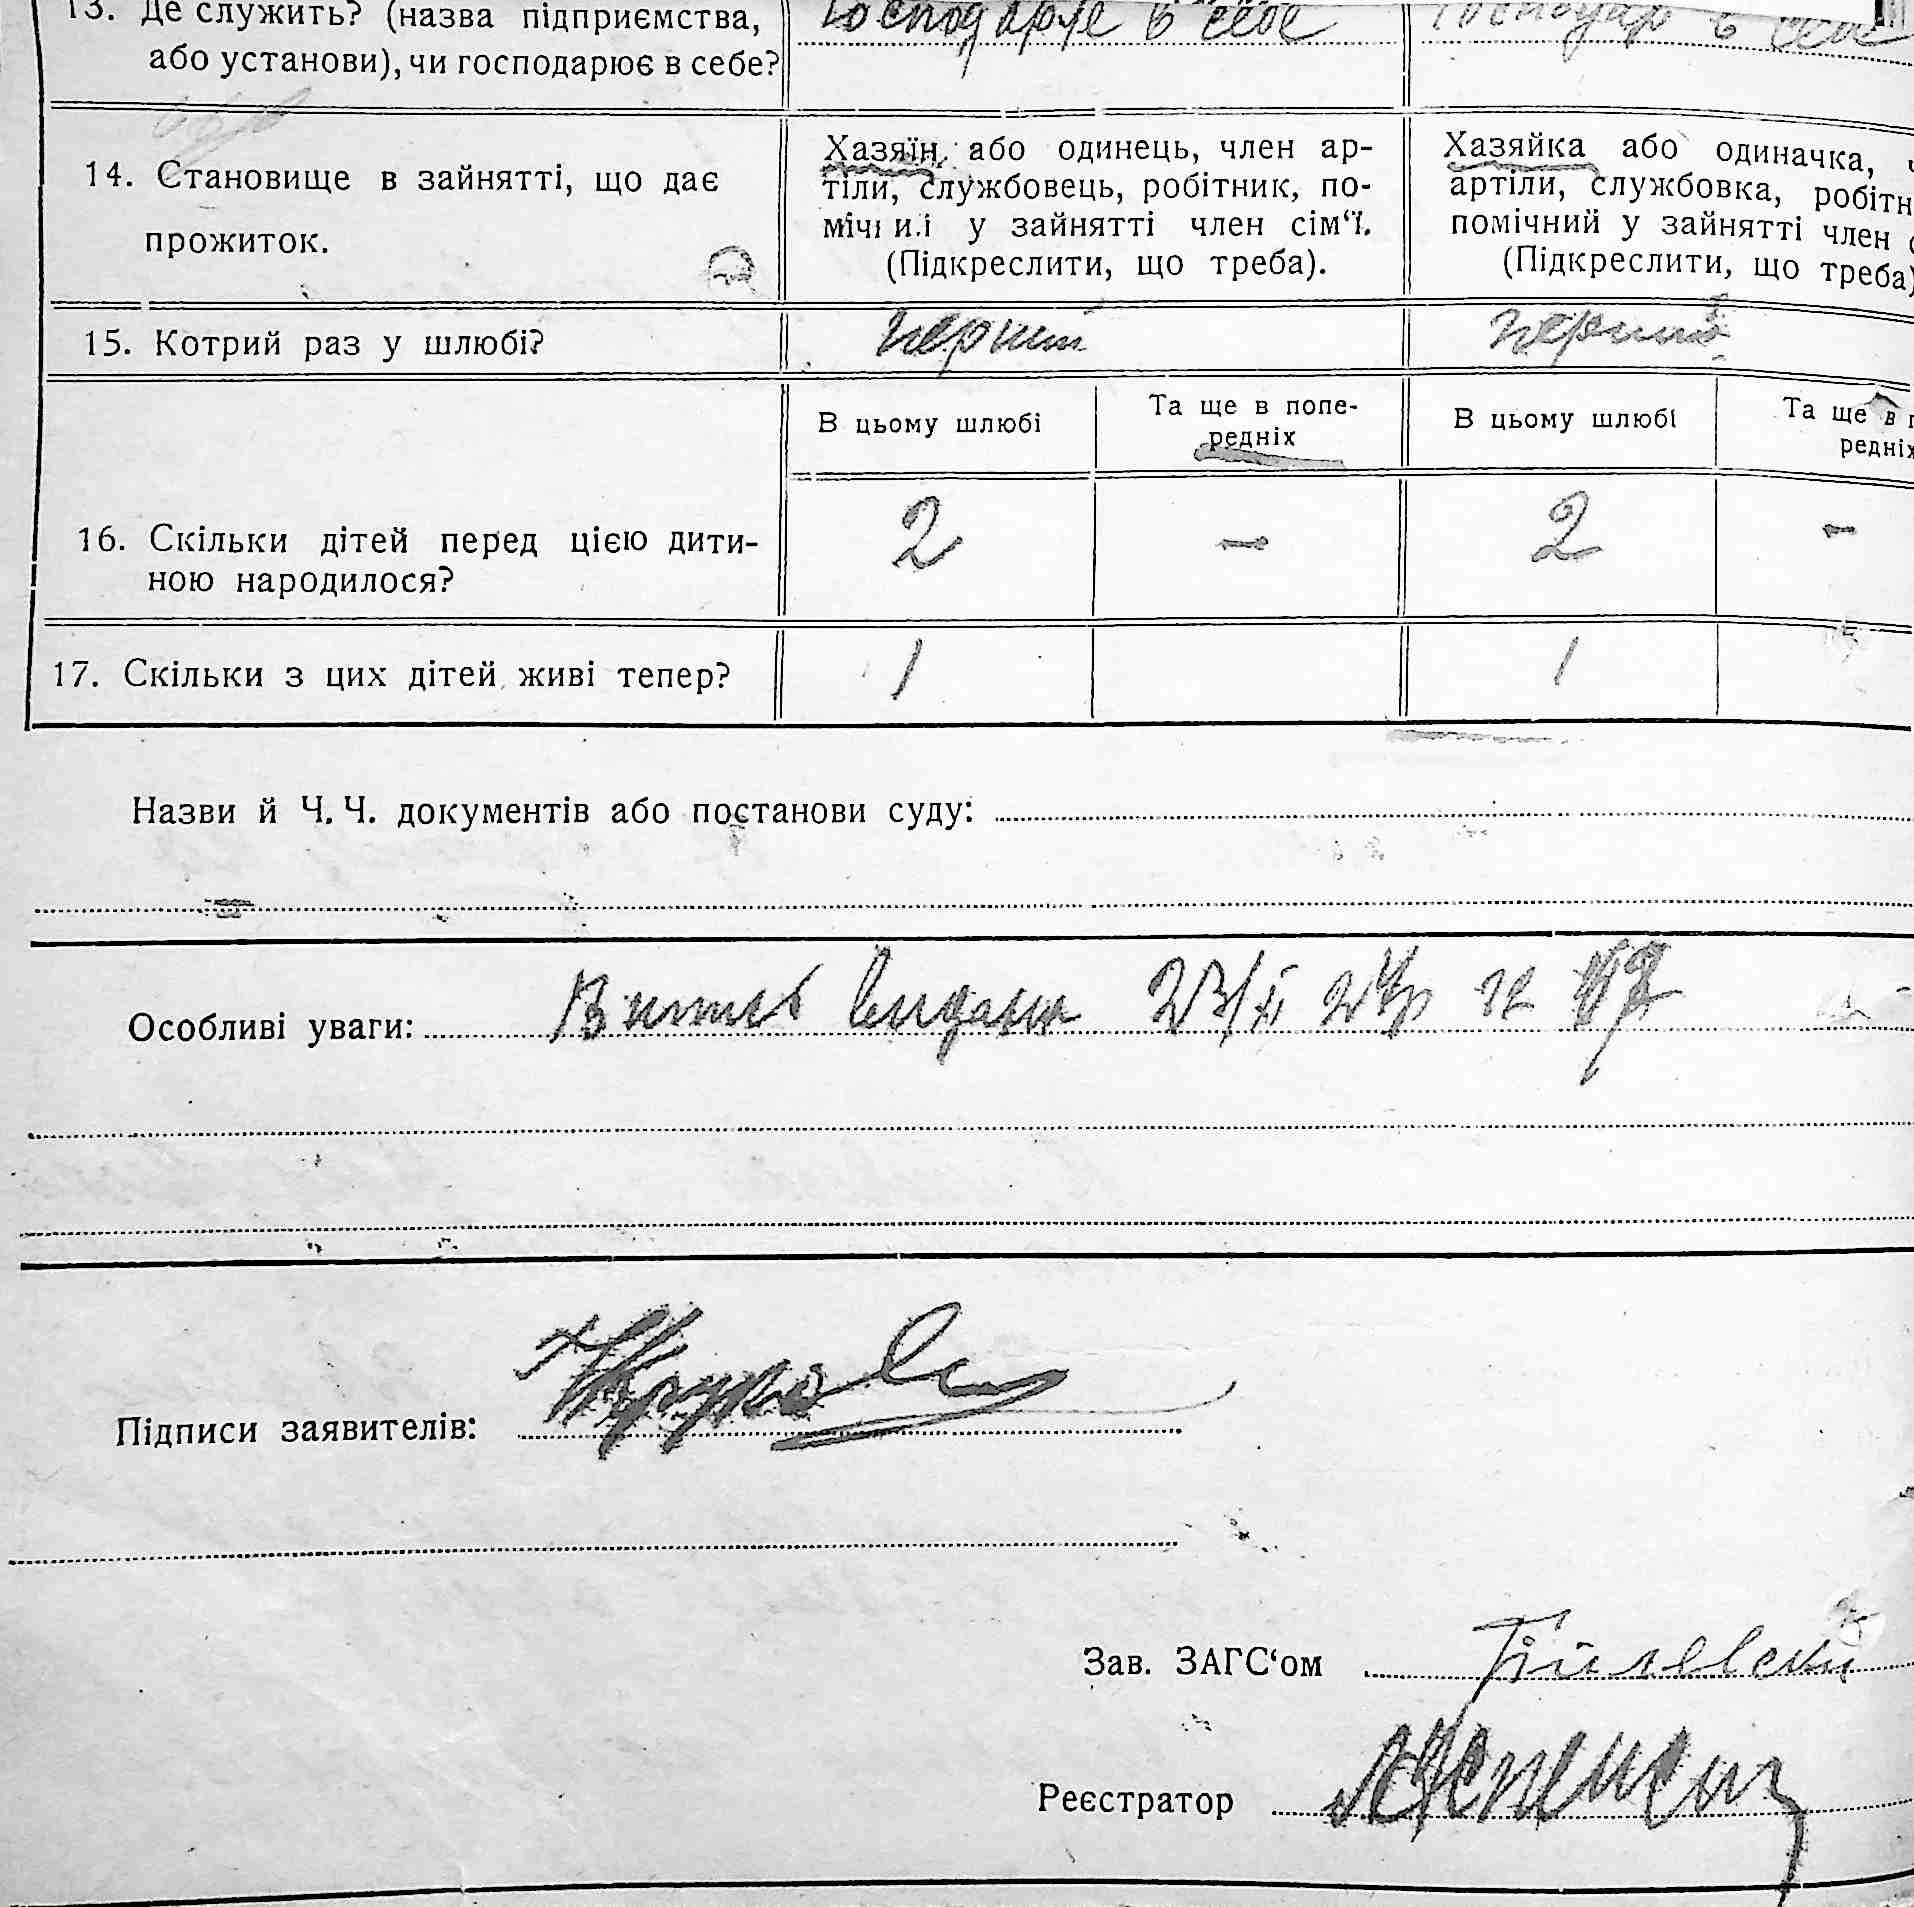 13. Де служить? (назва підприємства, Господарює в себе Господар в себе
або установи), чи господарює в себе?
14. Становище в зайнятті, що дає
прожиток.
Хазяїн, або одинець, член ар-
тіли, службовець, робітник, по-
мічн и.і у зайнятті член сім‘ї.
(Підкреслити, що треба).
Хазяйка або одиначка, ч
артіли, службовка, робітн
помічний у зайнятті член с
(Підкреслити, що треба)
15. Котрий раз у шлюбі? перший перший
В цьому шлюбі
Та ще в попе-
редніх
В цьому шлюбі
Та ще в п
редніх
16. Скільки дітей перед цією дити- 2 — 2 -
ною народилося?
17. Скільки з цих дітей живі тепер? 1 1
Назви й Ч. Ч. документів або постанови суду:
Особливі уваги: Витяг видано 23/II 24р
Підписи заявителів:
Зав. ЗАГС‘ом
Реєстратор